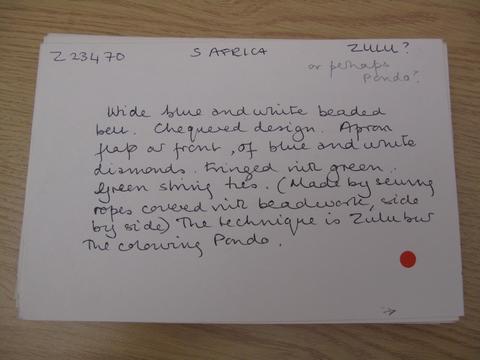 Z 23470 S AFRICA ZULU?
or perhaps
Pondo?
Wide blue and white beaded
belt. Chequered design. Apron
flap at front, of blue and white
diamonds. Fringed with green.
Green string ties. (Made by sewing
ropes covered with beadwork, side
by side) The technique is Zulu but
the colouring Pondo.